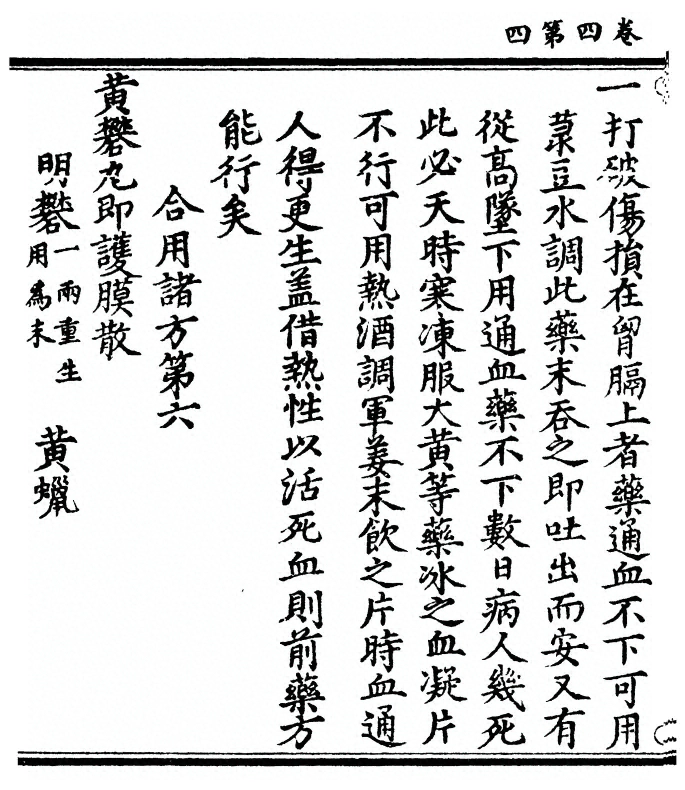 卷四第四
一打破傷損在胷膈上者藥通血不下可用
菉豆水調此藥末吞之即吐出而安又有
從高墜下用通血藥不下數日病人幾死
此必天時寒凍服大黃等藥冰之血凝片
不行可用熱酒調軍姜末飲之片時血通
人得更生盖借熱性以活死血則前藥方
能行矣
合用諸方第六
黃礬丸即護膜散
明礬一兩重生用為末 黃蠟